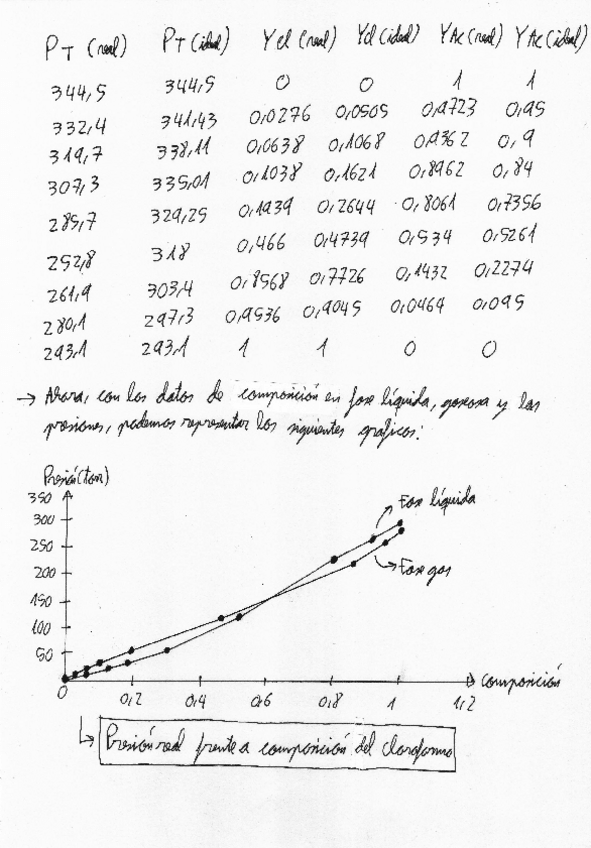 PT (real) PT (ideal) Ycl (real) Ycl (ideal) YAc (real) YAc (ideal)
344,5 344,5 0 0 1 1
332,4 341,43 0,0276 0,0505 0,9723 0,95
319,7 338,11 0,0638 0,1068 0,9362 0,9
307,3 335,01 0,1038 0,1621 0,8962 0,84
285,7 329,25 0,1939 0,2644 0,8061 0,7356
252,8 318 0,466 0,4739 0,534 0,5261
261,9 303,4 0,8568 0,7726 0,1432 0,2274
280,1 297,3 0,9536 0,9045 0,0464 0,095
293,1 293,1 1 1 0 0
→ Ahora, con los datos de composición en fase líquida, gaseosa y las
presiones, podemos representar los siguientes gráficos:
Presión (torr)
350
300
250
200
150
100
50
Fase líquida
Fase gas
0 0,2 0,4 0,6 0,8 1 1,2
composición
Presión real frente a composición del cloroformo